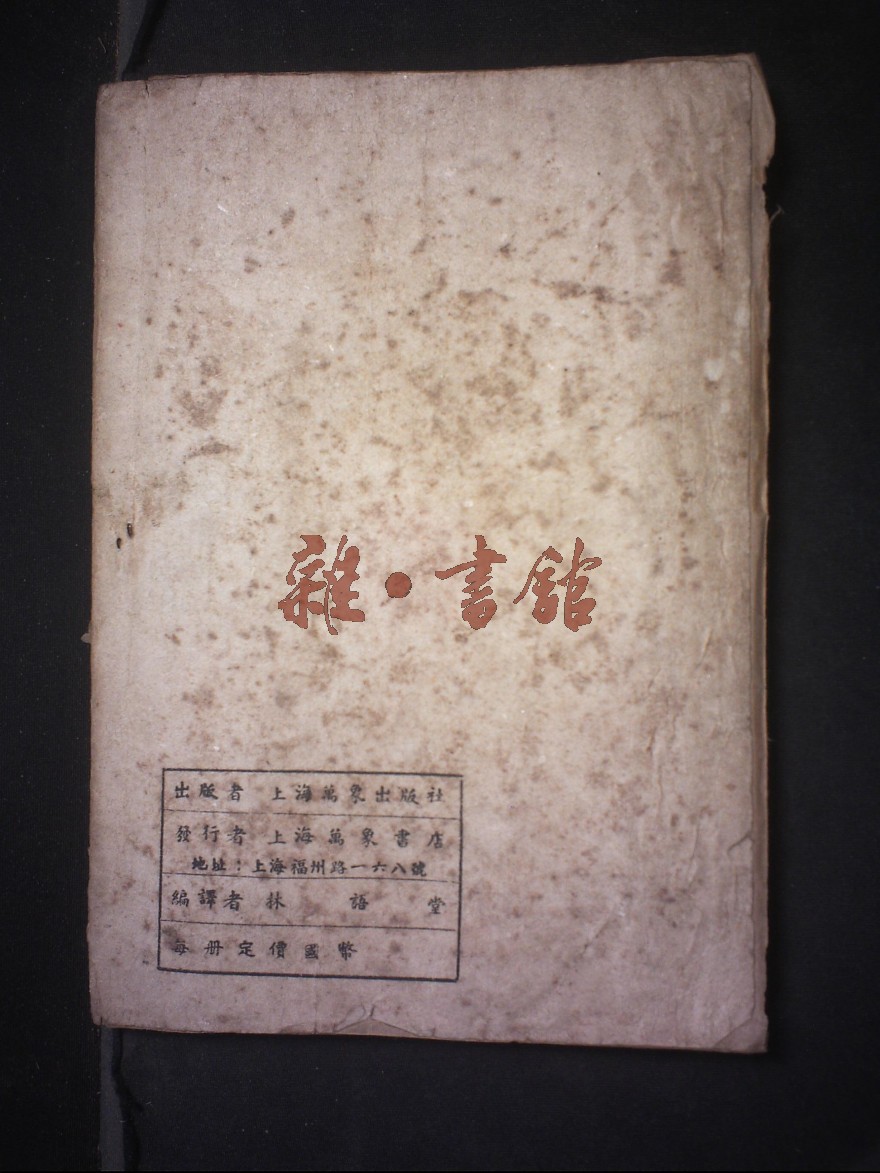 雜·書館
出版者 上海萬象出版社
發行者 上海萬象書店
地址：上海福州路一六八號
編譯者 林語堂
每册定價國幣